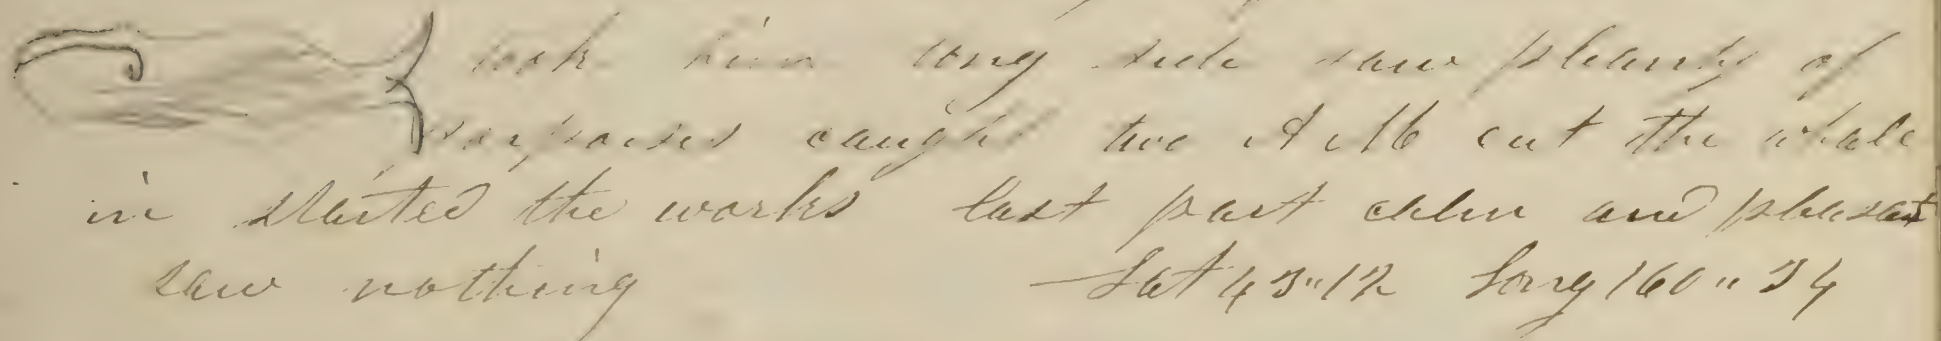 took him long side saw plenty of
porpoises caught two At 16 cut the whale
in started the works last part calm and pleasant
saw nothing Lat 43"12 Long 160"34